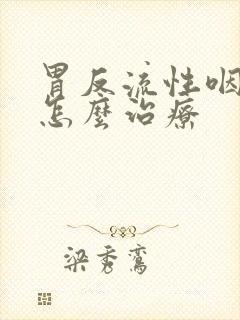 胃反流性咽
怎麼治療
梁秀鸞